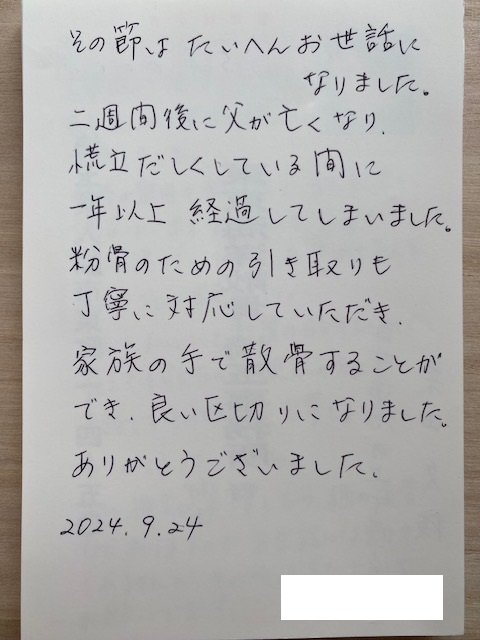 その節は たいへんお世話に
なりました。
二週間後に父が亡くなり、
慌立だしくしている間に
一年以上 経過してしまいました。
粉骨のための引き取りも
丁寧に対応していただき、
家族の手で散骨することが
でき、良い区切りになりました。
ありがとうございました。
2024.9.24